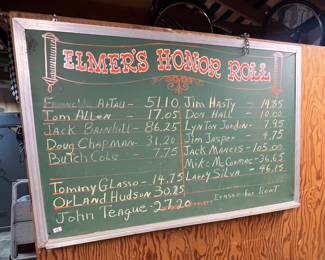 ELMER'S HONOR ROLL
AtTau - 51.10
Tom Allen - 17.05
Jack Barnhill - 86.25
Doug Chapman - 31.20
Butch Cole 7.75
Tommy Glasso - 14.75
Orland Hudson 30.25
John Teague - 27.20
Jim Hasty - 14.85
Don Hall - 10.00
Lynton Jordan - 1.95
Jim Jasper - 4.75
Jack Maness - 105.00
Mike McCormac - 36.65
Larry Silva - 46.15